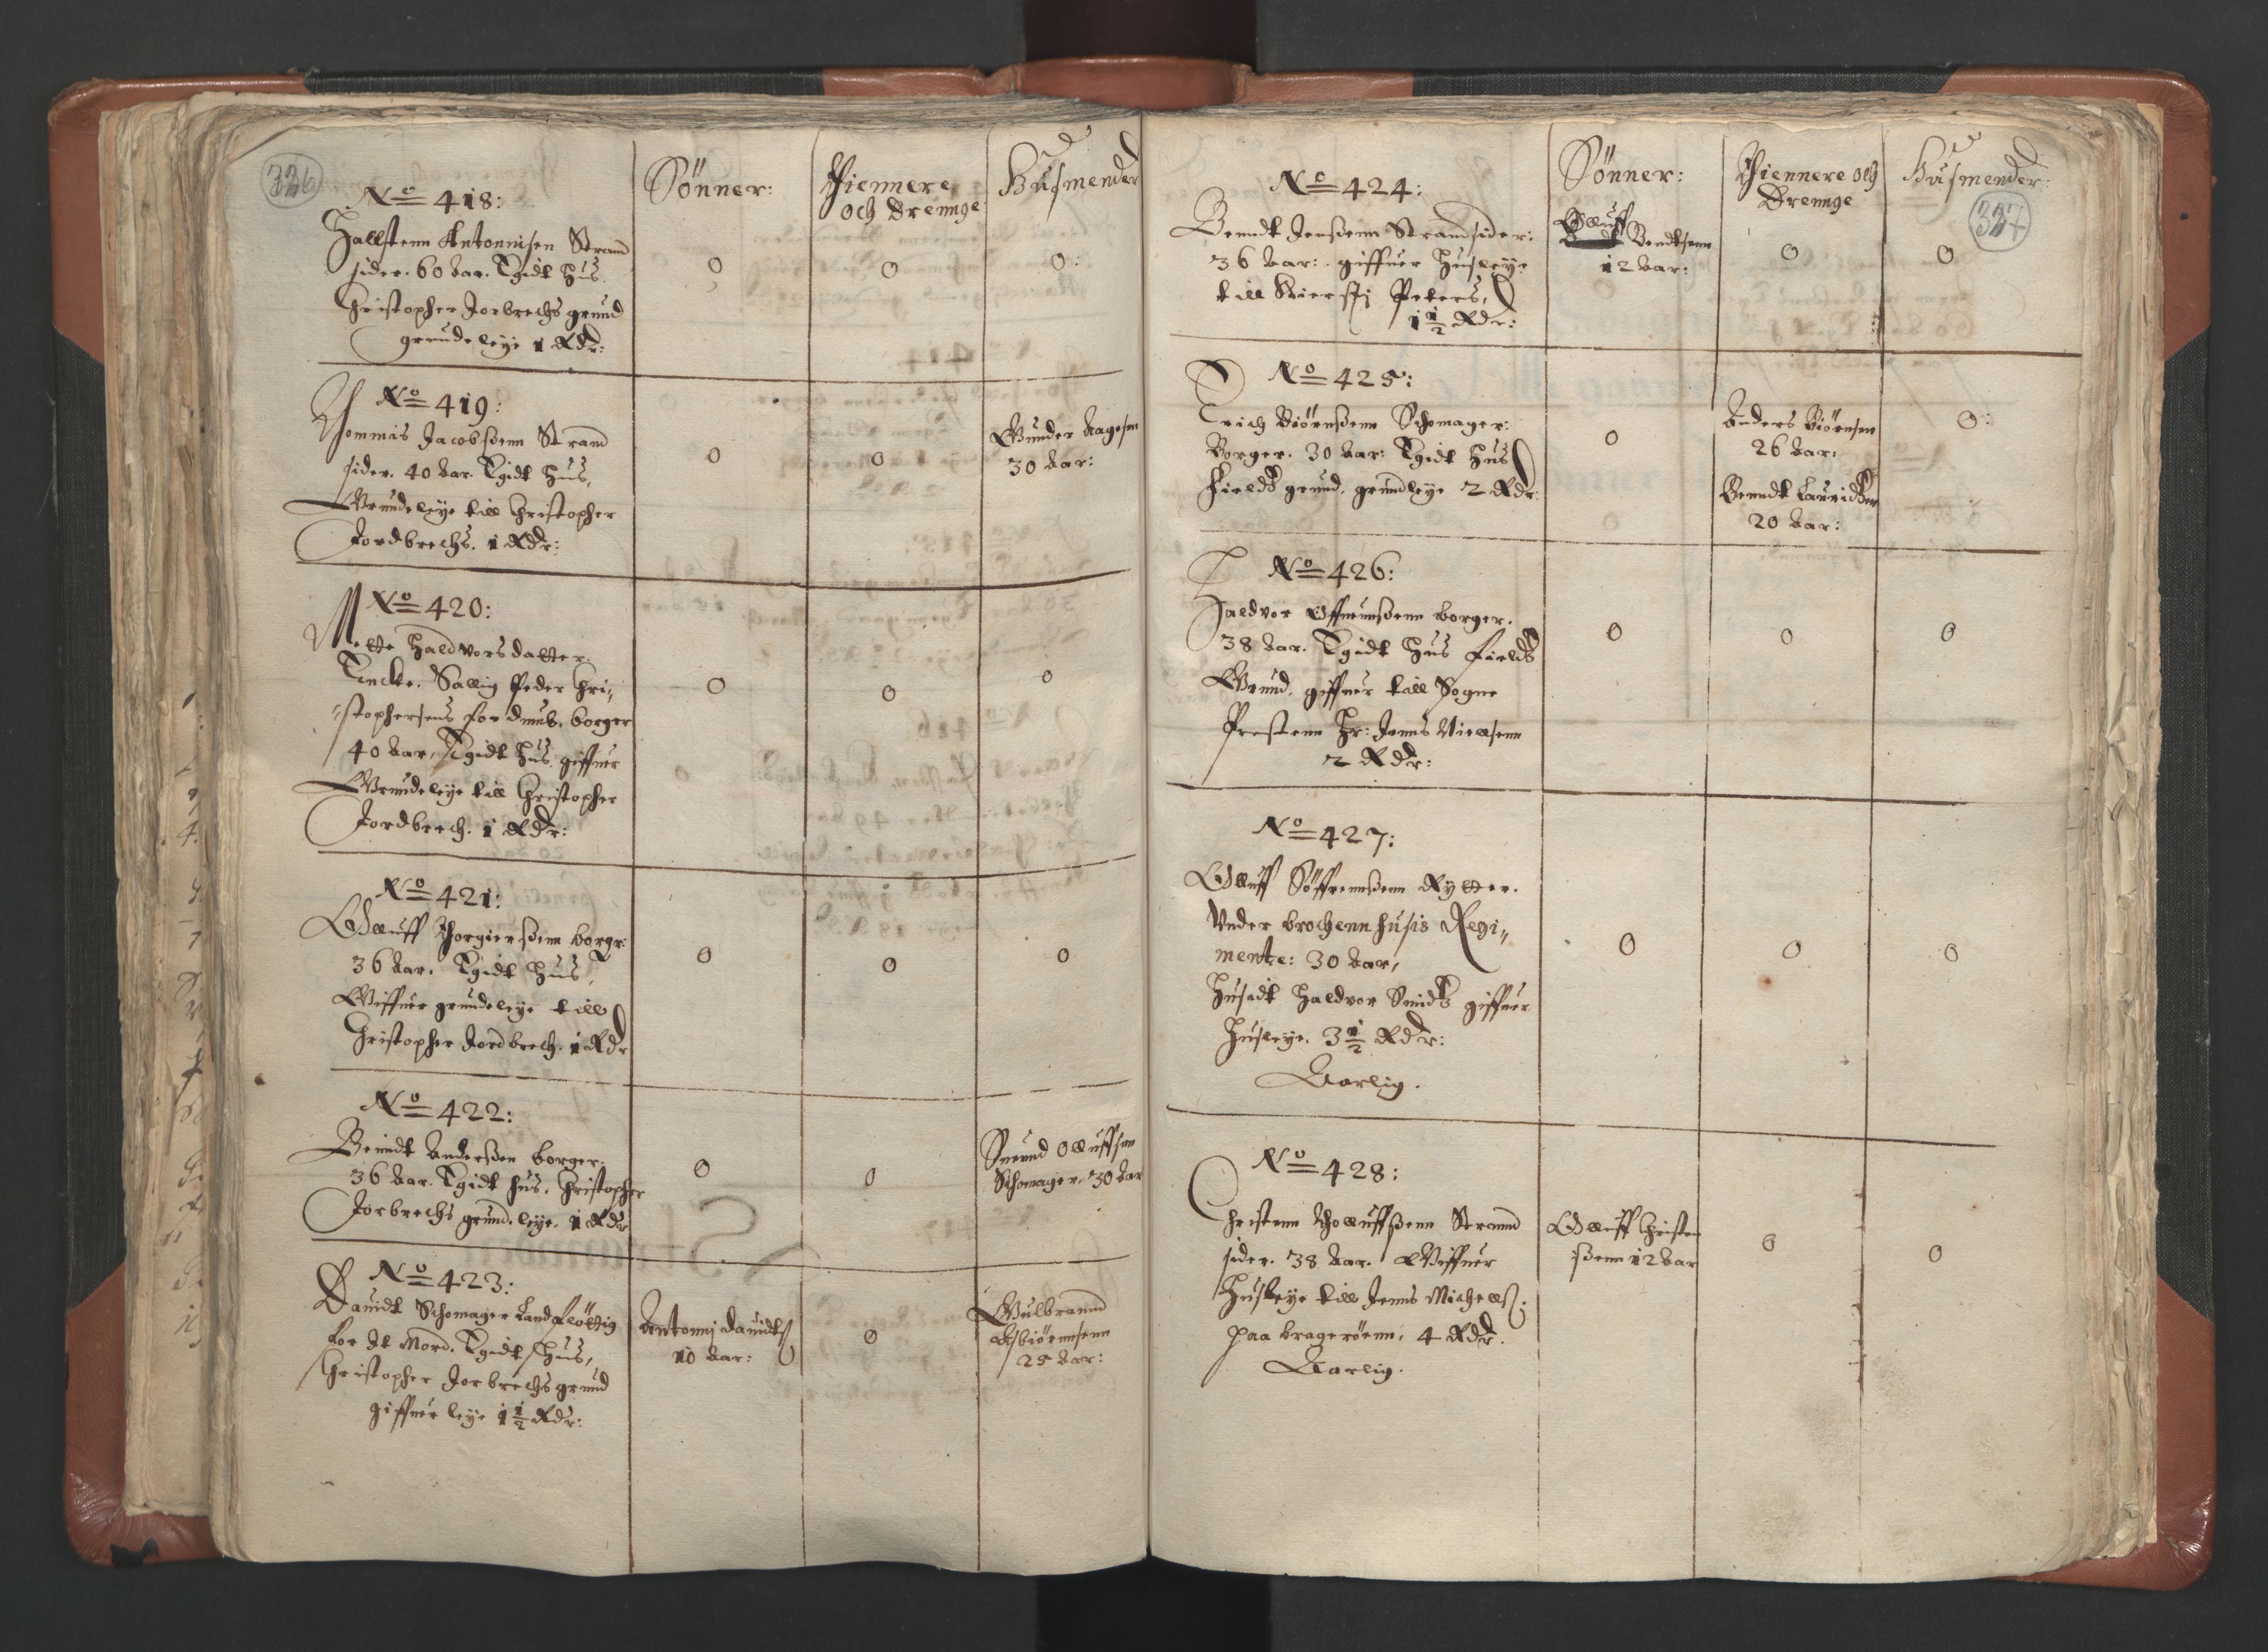 336
Sönner:
Thiennere
och Drennge
Husmender
No 418:
Hallstenn Antonnisen Strand
sider. 60 Aar. Egidt Hus.
Christopher Jorbrechs grund
grundeleye 1 Rdr:
0
0
0:
No 419:
Thommis Jacobßenn Strand
sider. 40 Aar. Egidt Hus,
Grundeleye till Christopher
Jordbrechs. 1 Rdr:
0
0
Gunder Aagesen
30 Aar:
No 420:
Mette Haldvors datter.
Encke. Sallig Peder Chri„
„stophersens fordumb. borger
40 Aar, Egidt Hus giffuer
Grundeleye till Christopher
Jordbrech. 1 Rdr:
0
0
0
No 421:
Olluff Thorgierßenn borgr:
36 Aar. Egidt Hus,
Giffuer grundeleye till
Christopher Jordbrech. 1 Rdr
0
0
0
No 422:
Benndt Anderßen borger.
36 Aar. Egidt hus. Christopher
Jorbrechs grund. leye. 1 Rdr
0
0
Suennd Olluffsen
Schomager. 30 Aar
No 423:
Dauidt Schomager Landfløttig
for It Mord. Egidt Hus,
Christopher Jorbrechs grund
giffuer leye 1 1/2 Rdr:
Antonni Dauidts
10 Aar:
0
Gulbrannd
Asbiörnnsenn
25 Aar:
337
Sönner:
Thiennere och
Drennge
Husmender:
No 424:
Benndt Jenßenn Strandsider:
36 Aar: giffuer Husleye
till Kiersti Peters,
1 1/2 Rdr:
Olluff Bendtsenn
12 Aar:
0
0
No 425:
Erich Biörnßenn Schomager:
Borger. 30 Aar: Egidt Hus
Fields grund. grundleye 2 Rdr:
0
Anders Biörnsen
26 Aar:
Benndt Lauridßen
20 Aar:
0:
No 426:
Haldvor Effuennßenn borger.
38 Aar. Egidt Hus Fields
Grund. giffuer till Sogne
Prestenn Hr: Jenns Niellsenn
2 Rdr:
0
0
0
No 427:
Olluff Söffrennßenn Rytter.
Under brochennhusis Regi„
mente: 30 Aar,
Husidt Haldvor Smidts giffuer
Husleye. 3 1/2 Rdr:
Aarlig.
0
0
0
No 428:
Christenn Tholluffßenn Strannd
sider. 38 Aar. Giffuer
Husleye till Jenns Michells:
paa brageröenn, 4 Rdr.
Aarlig.
Olluff Christen
ßenn 12 Aar
0
0